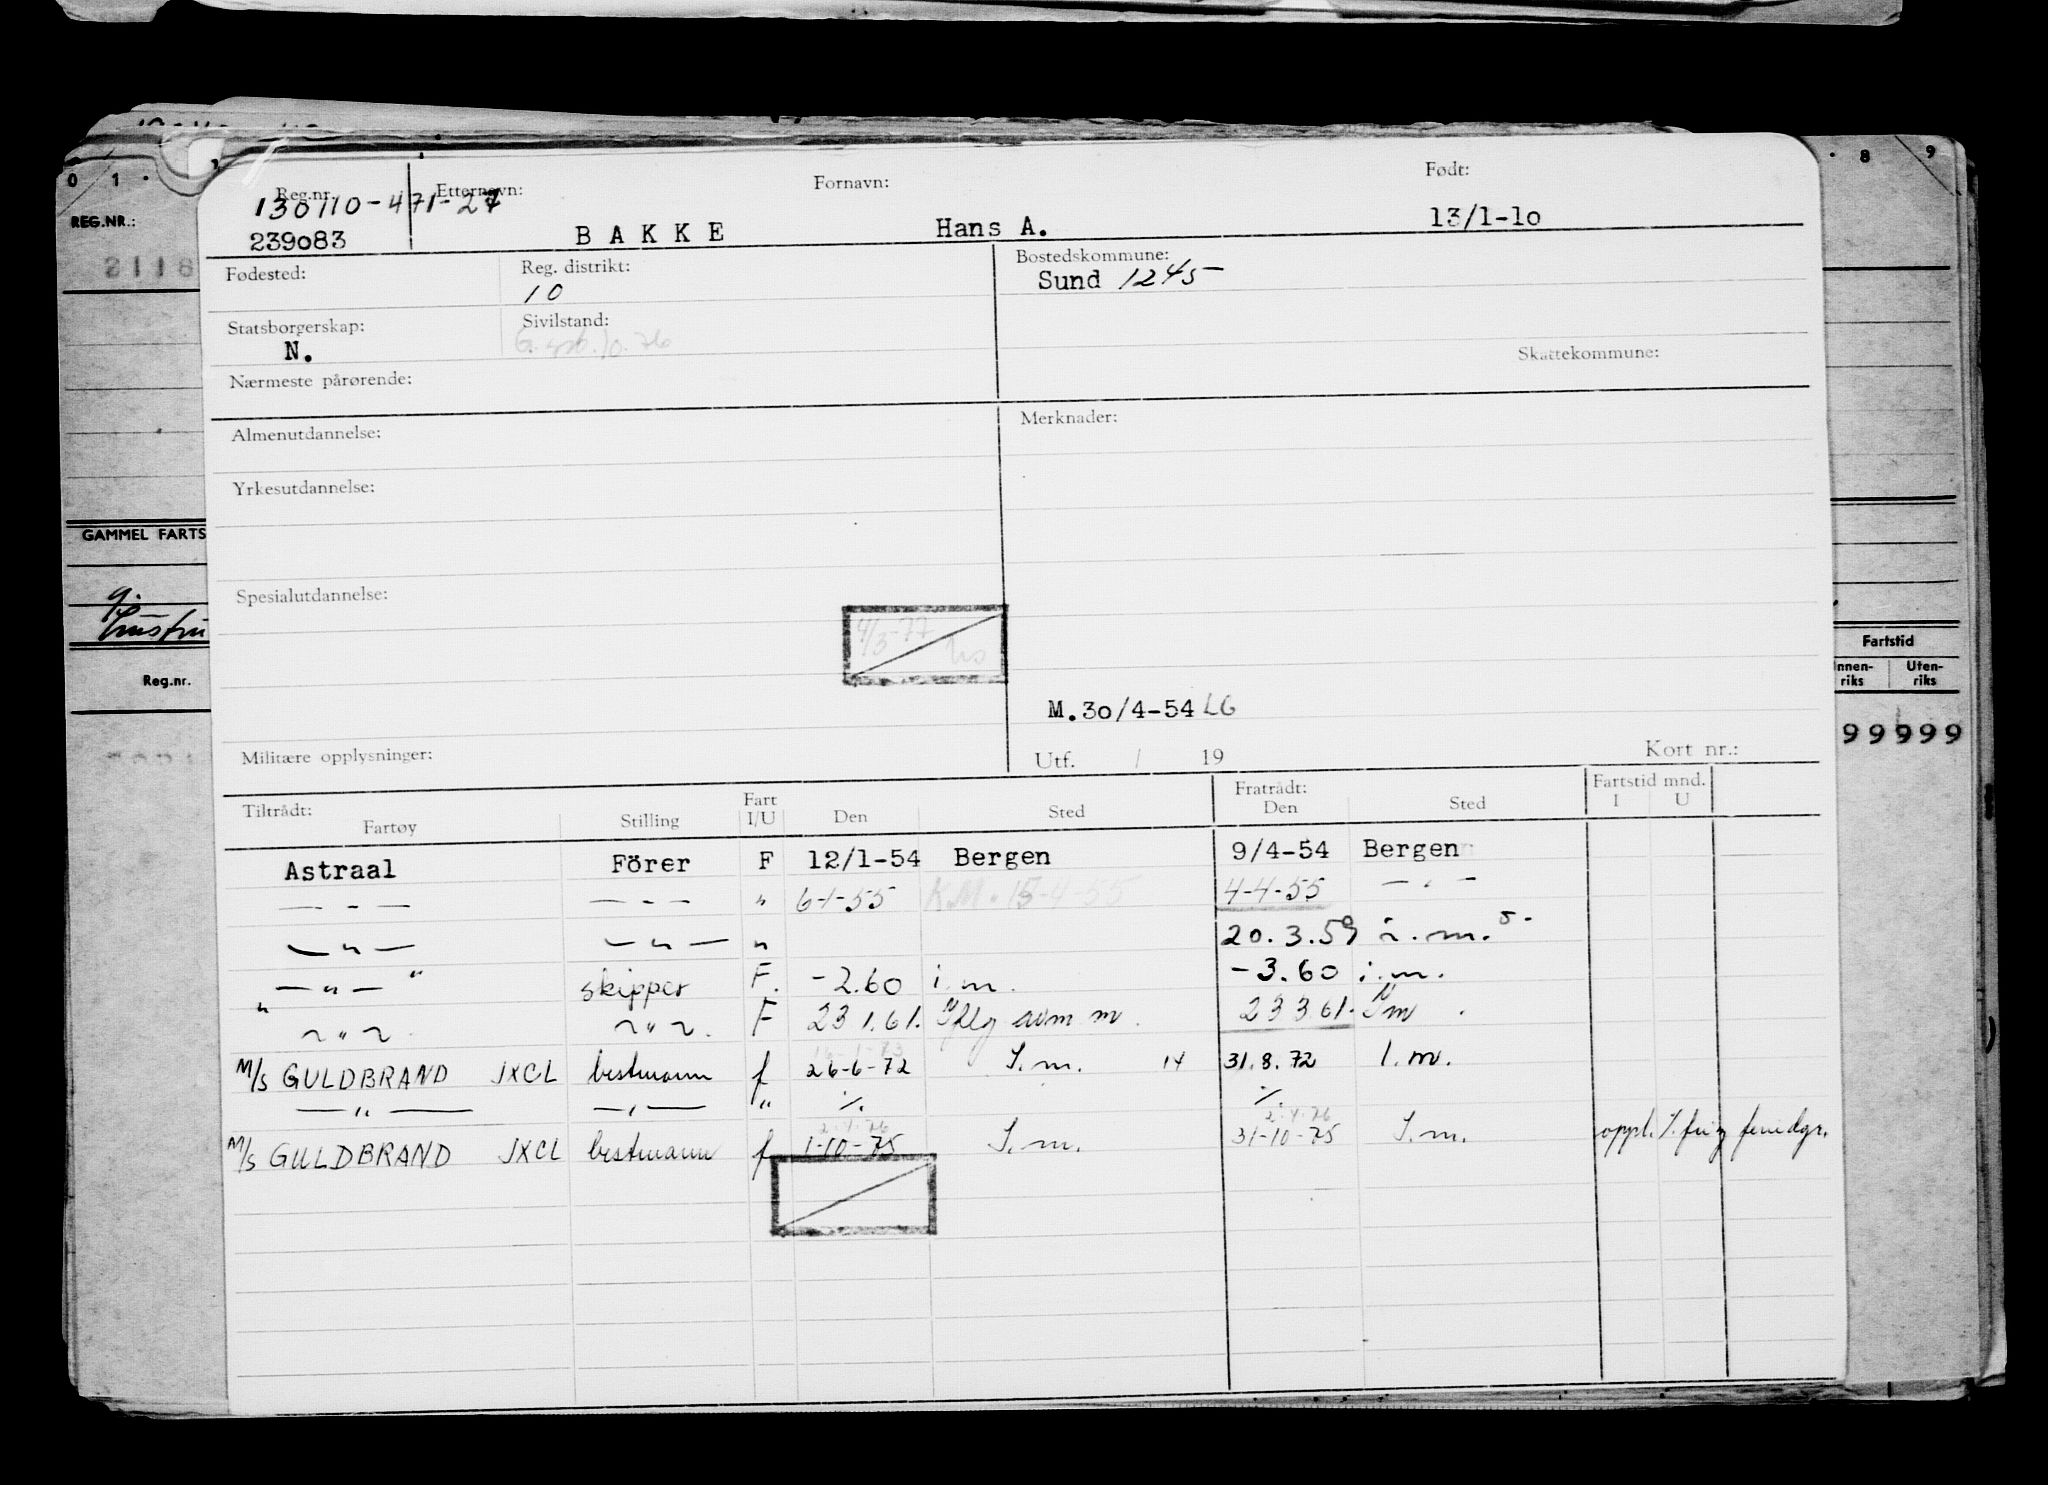 0 1 · 8 9
REG.NR.:
2118
GAMMEL FARTS
Reg.nr.
Fartstid
Innen-riks Uten-riks
99999
Reg.nr. Etternavn: Fornavn: Født:
130110-471-27
239083 BAKKE Hans A. 13/1-10
Fødested: Reg. distrikt: Bostedskommune:
10 Sund 1245
Statsborgerskap: Sivilstand:
N. 10.76
Skattekommune:
Nærmeste pårørende:
Almenutdannelse: Merknader:
Yrkesutdannelse:
Spesialutdannelse:
4/3-77
M.30/4-54 LG
Militære opplysninger: Utf. / 19 Kort nr.:
Tiltrådt: Fratrådt: Fartstid mnd.
Fartøy Stilling Fart I/U Den Sted Den Sted I U
Astraal Förer F 12/1-54 Bergen 9/4-54 Bergen
— - — — - — " 6-1-55 K.M. 15-4-55 4-4-55 — " —
— " — — " — " 20.3.59 i.m.
— " — " skipper F. -2.60 i.m. -3.60 i.m.
" ~ " ~ ~ " ~. F 23 1.61. m. 23 3 61. m.
M/S GULDBRAND JXCL bestmann f 26-6-72 I.m. 14 31.8.72 I.m.
— " — — " — " ./. ./.
M/S GULDBRAND JXCL bestmann f 1-10-75 I.m. 31-10-75 I.m. oppl.